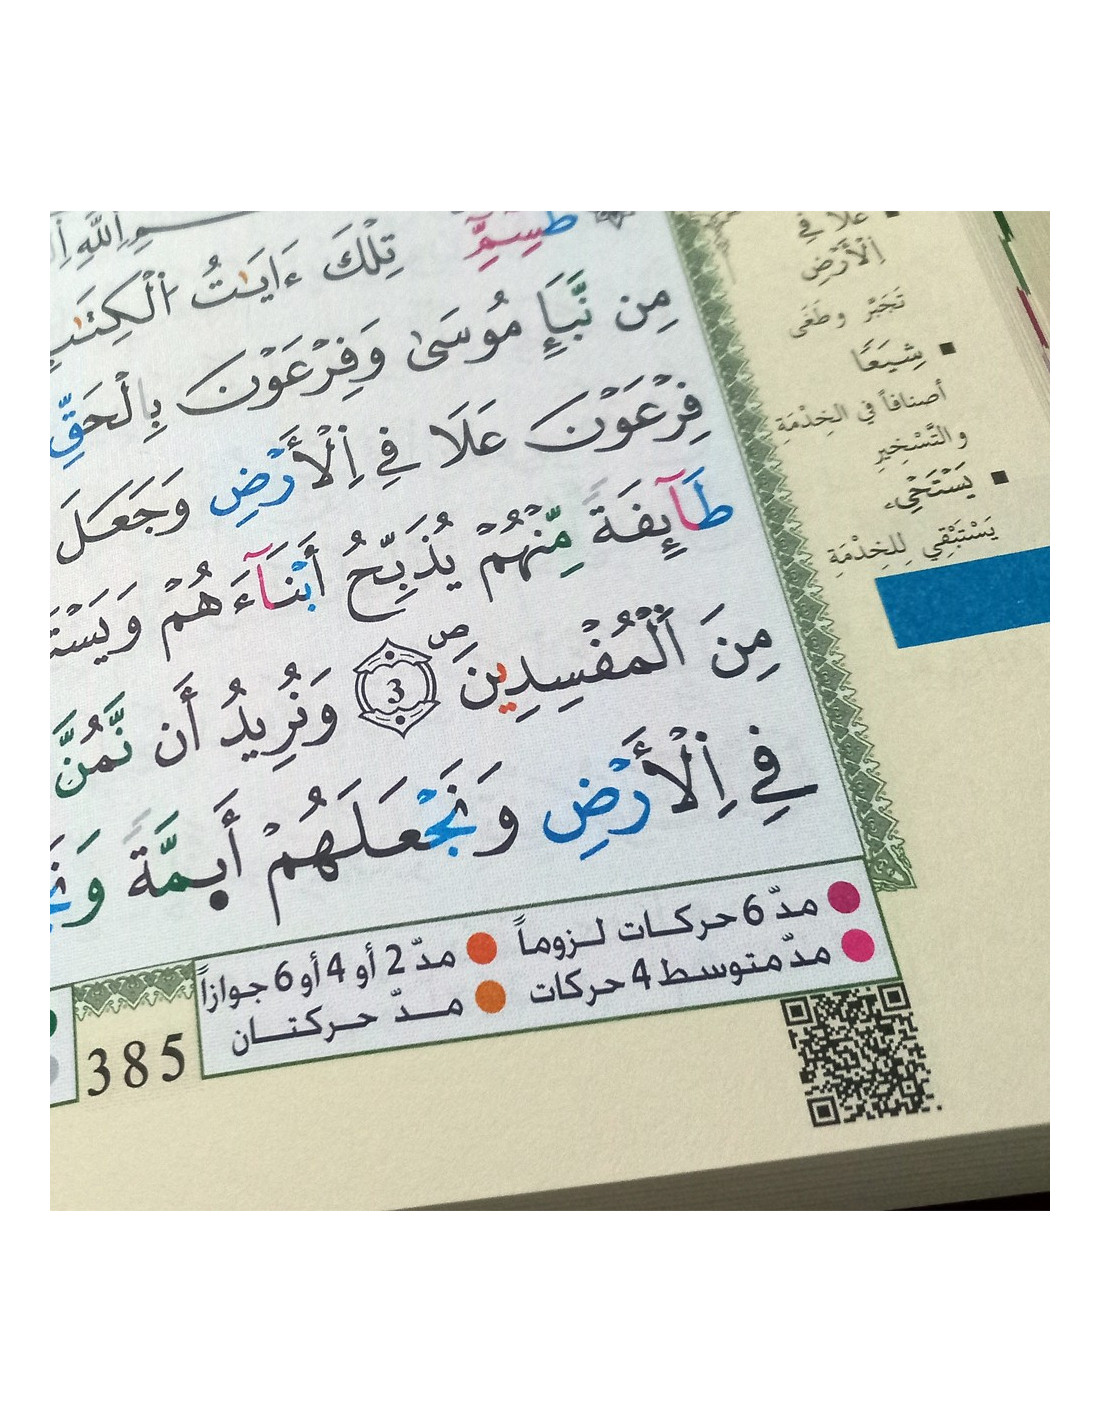 طسٓمٓ تِلْكَ ءَايَٰتُ اُ۬لْكِتَٰبِ
مِن نَّبَإِ مُوسَىٰ وَفِرْعَوْنَ بِالْحَقِّ
فِرْعَوْنَ عَلَا فِے اِ۬لْأَرْضِ وَجَعَلَ
طَآئِفَةً مِّنْهُمْ يُذَبِّحُ أَبْنَآءَهُمْ
مِنَ اَ۬لْمُفْسِدِينَ ص 3 وَنُرِيدُ أَن نَّمُنَّ
فِے اِ۬لْأَرْضِ وَنَجْعَلَهُمْ أَئِمَّةً
عَلَا فِے
اِ۬لْأَرْضِ
تَجَبَّر وطَغَى
شِيَعًا
أصنافاً في الخِدْمَةِ
والتَّسْخِيرِ
يَسْتَحْيِۦ
يَسْتَبْقِي لِلخِدْمَةِ
مدّ 6 حركات لزوماً
مدّ 2 أو 4 أو 6 جوازاً
مدّ متوسط 4 حركات
مدّ حركتان
385